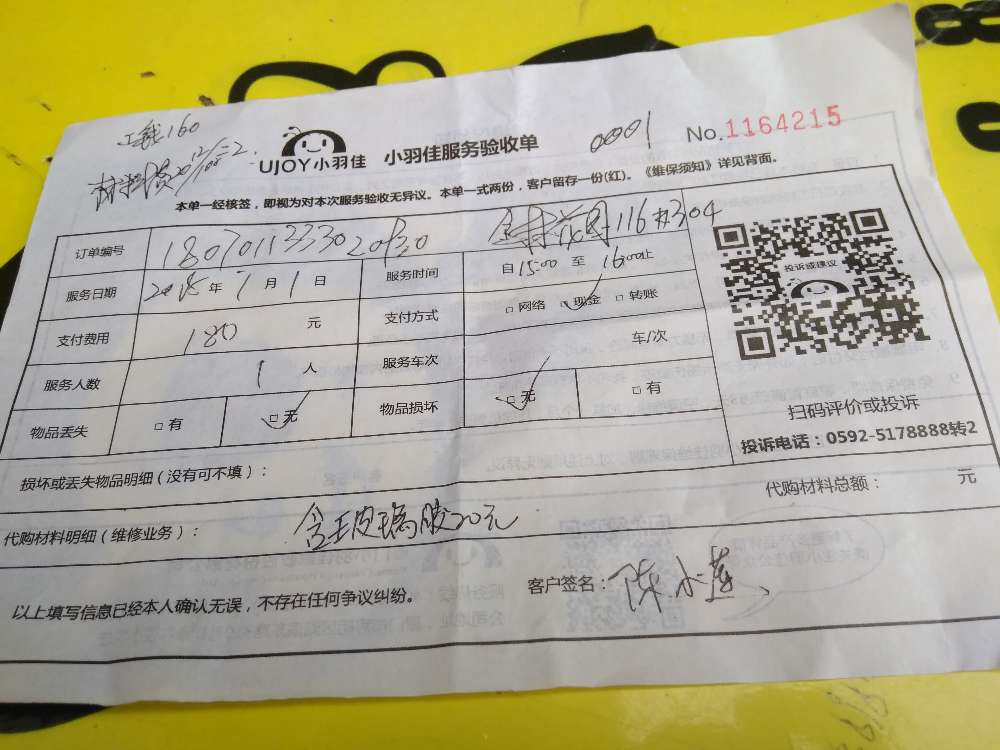 工钱160
材料费20
UJOY小羽佳 小羽佳服务验收单 0001 No.1164215
本单一经核签，即视为对本次服务验收无异议。本单一式两份，客户留存一份(红)。《维保须知》详见背面。
订单编号 116#304
服务日期 2018年7月1日 服务时间 自15:00至16:00止
支付费用 180元 支付方式 □网络 □现金 □转账
服务人数 1人 服务车次 车/次
物品丢失 □有 □无 物品损坏 □无 □有
投诉或建议
扫码评价或投诉
投诉电话：0592-5178888转2
损坏或丢失物品明细（没有可不填）：
代购材料总额： 元
代购材料明细（维修业务）： 含玻璃胶20元
以上填写信息已经本人确认无误，不存在任何争议纠纷。 客户签名：陈小莲